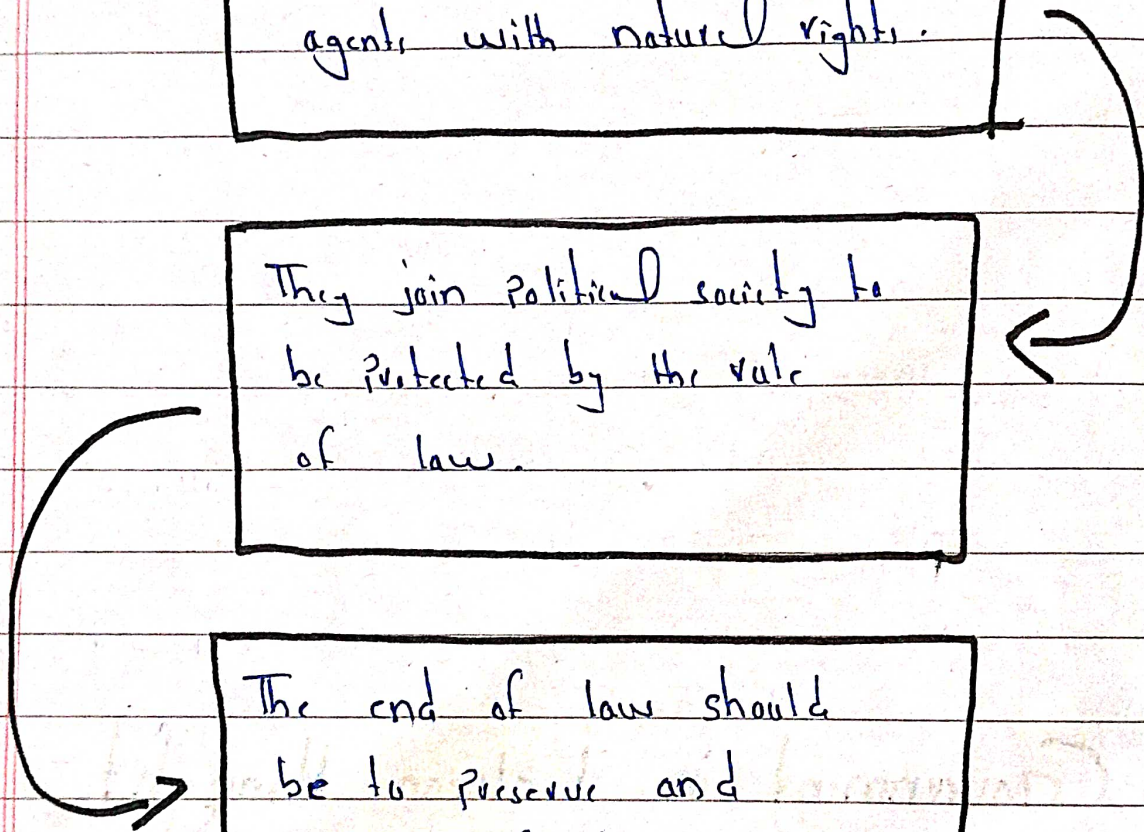 agents with natural rights.
They join Political society to
be Protected by the rule
of law.
The end of law should
be to Preserve and